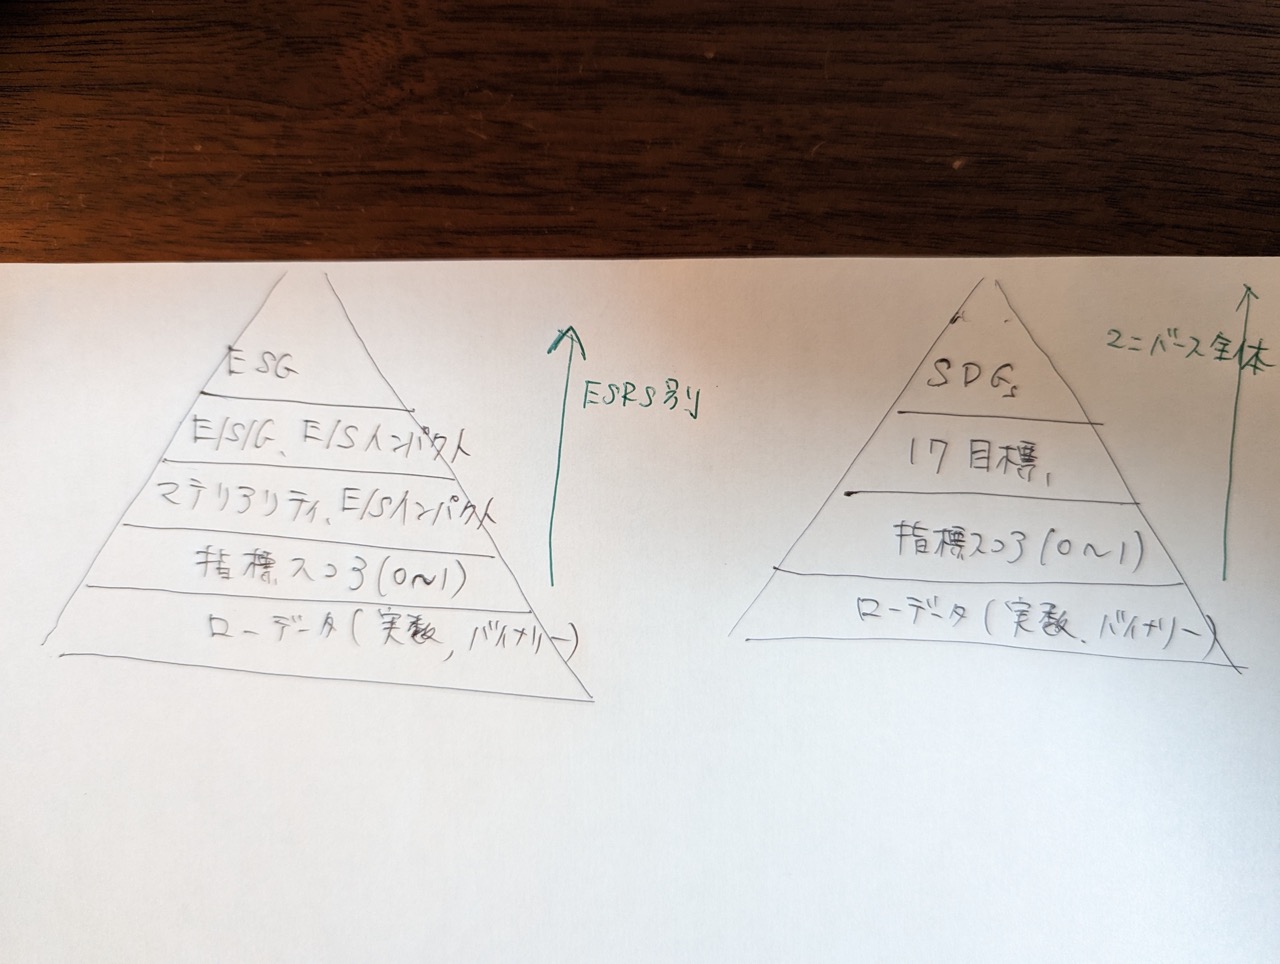 ESG
E/S/G、E/Sインパクト
マテリアリティ、E/Sインパクト
指標スコア(0~1)
ローデータ(実数,バイナリー)
ESRS別
SDGs
17目標,
指標スコア(0~1)
ローデータ(実数、バイナリー)
ユニバース全体